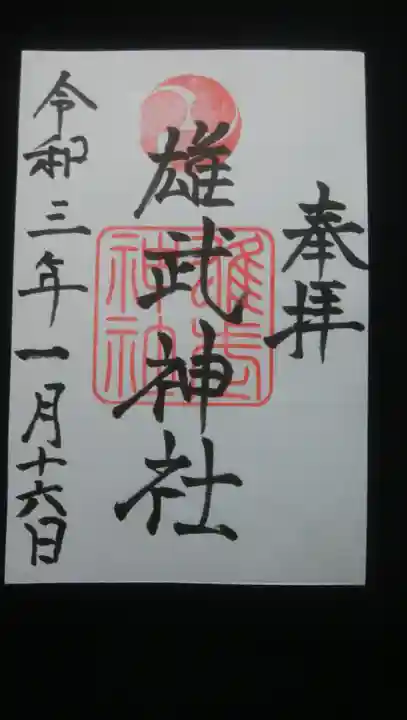 奉拝
雄武神社
雄武
神社
令和三年一月十六日